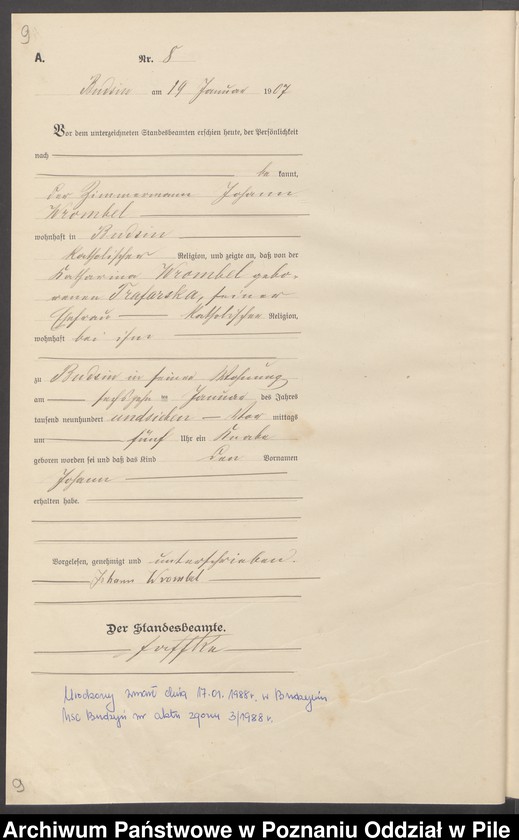 9
A. Nr. 8
Budsin am 19 Januar 1907
Vor dem unterzeichneten Standesbeamten erschien heute, der Persönlichkeit
nach
be kannt,
der Zimmermann Johann
Wrombel
wohnhaft in Budsin
katholischer Religion, und zeigte an, daß von der
Katharina Wrombel gebo-
renen seiner
Ehefrau katholischer Religion,
wohnhaft bei ihm
zu Budsin in seiner Wohnung
am sechszehn ten Januar des Jahres
tausend neunhundert undsieben Vor mittags
um fünf Uhr ein Knabe
geboren worden sei und daß das Kind den Vornamen
Johann
erhalten habe.
Vorgelesen, genehmigt und unterschrieben.
Johann Wrombel
Der Standesbeamte.
Urodzony zmarł dnia 17.01.1988r. w Budzyniu
Usc Budzyń nr aktu zgonu 3/1988 r.
9
Archiwum Państwowe w Poznaniu Oddział w Pile